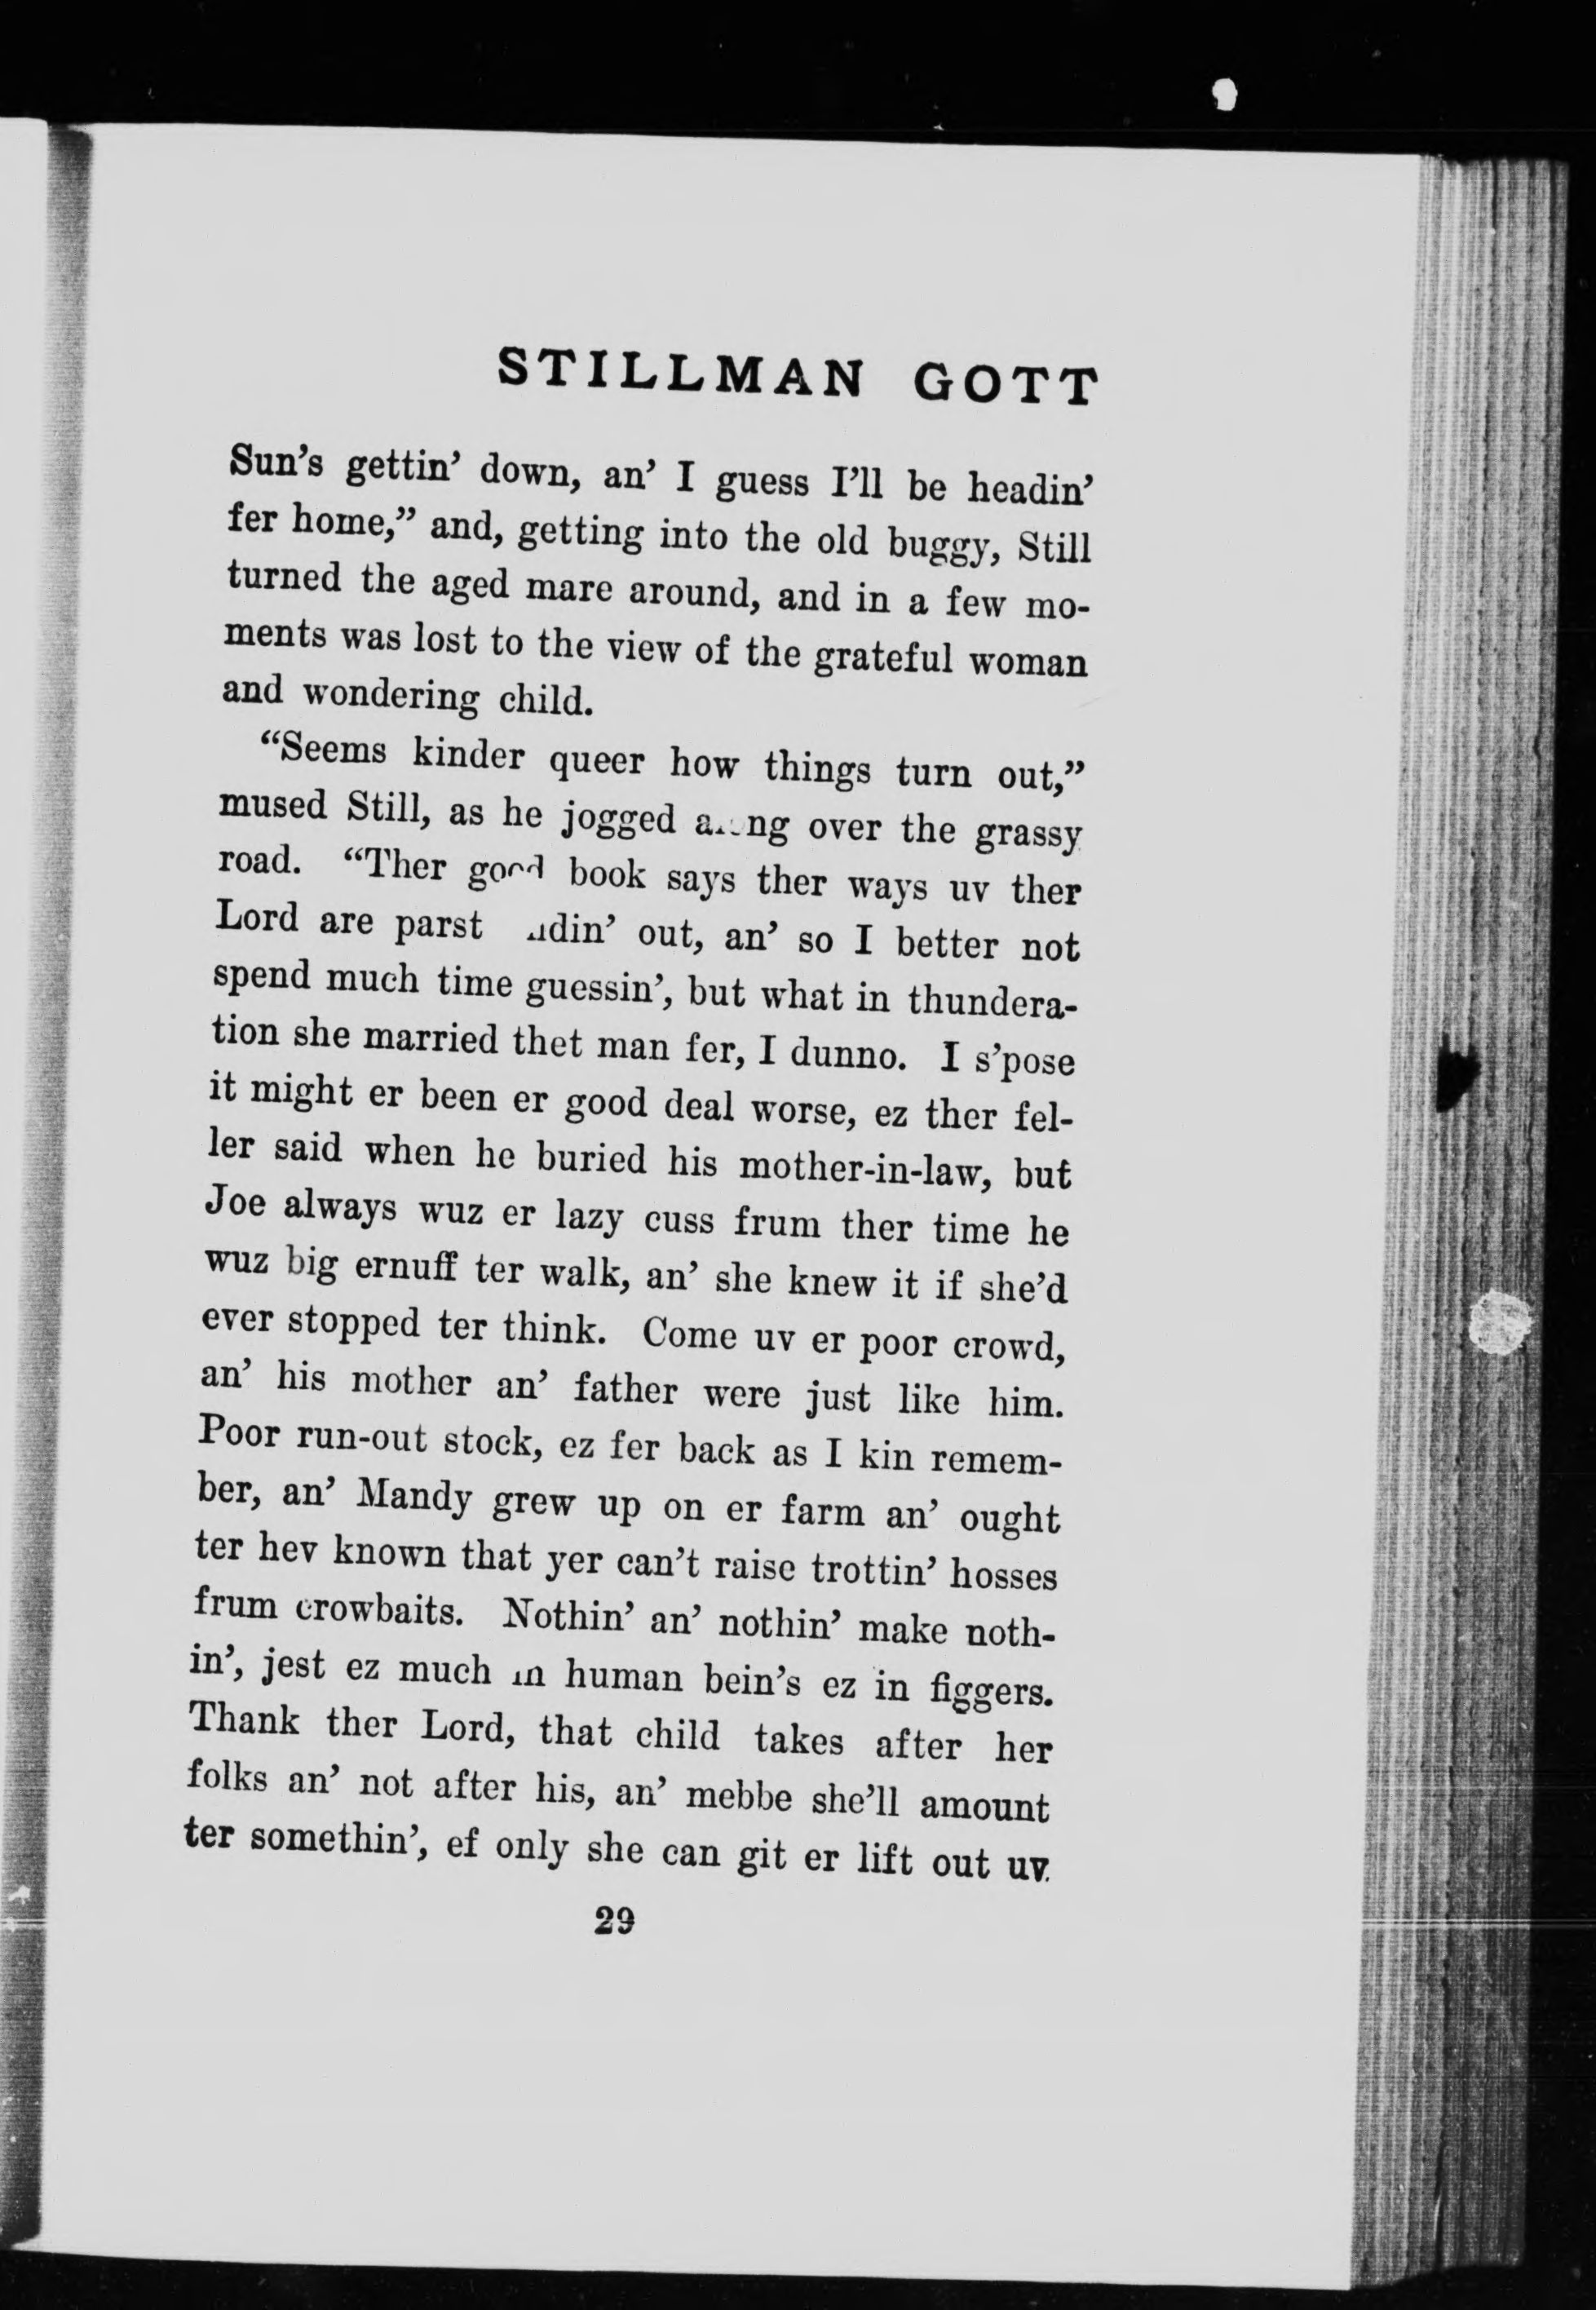 STILLMAN GOTT
Sun's gettin' down, an' I guess I'll be headin'
fer home," and, getting into the old buggy, Still
turned the aged mare around, and in a few mo-
ments was lost to the view of the grateful woman
and wondering child.
"Seems kinder queer how things turn out,"
mused Still, as he jogged over the grassy
road. "Ther good book says ther ways uv ther
Lord are parst out, an' so I better not
spend much time guessin', but what in thundera-
tion she married thet man fer, I dunno. I s'pose
it might er been er good deal worse, ez ther fel-
ler said when he buried his mother-in-law, but
Joe always wuz er lazy cuss frum ther time he
wuz big ernuff ter walk, an' she knew it if she'd
ever stopped ter think. Come uv er poor crowd,
an' his mother an' father were just like him.
Poor run-out stock, ez fer back as I kin remem-
ber, an' Mandy grew up on er farm an' ought
ter hev known that yer can't raise trottin' hosses
frum crowbaits. Nothin' an' nothin' make noth-
in', jest ez much in human bein's ez in figgers.
Thank ther Lord, that child takes after her
folks an' not after his, an' mebbe she'll amount
ter somethin', ef only she can git er lift out uv
29